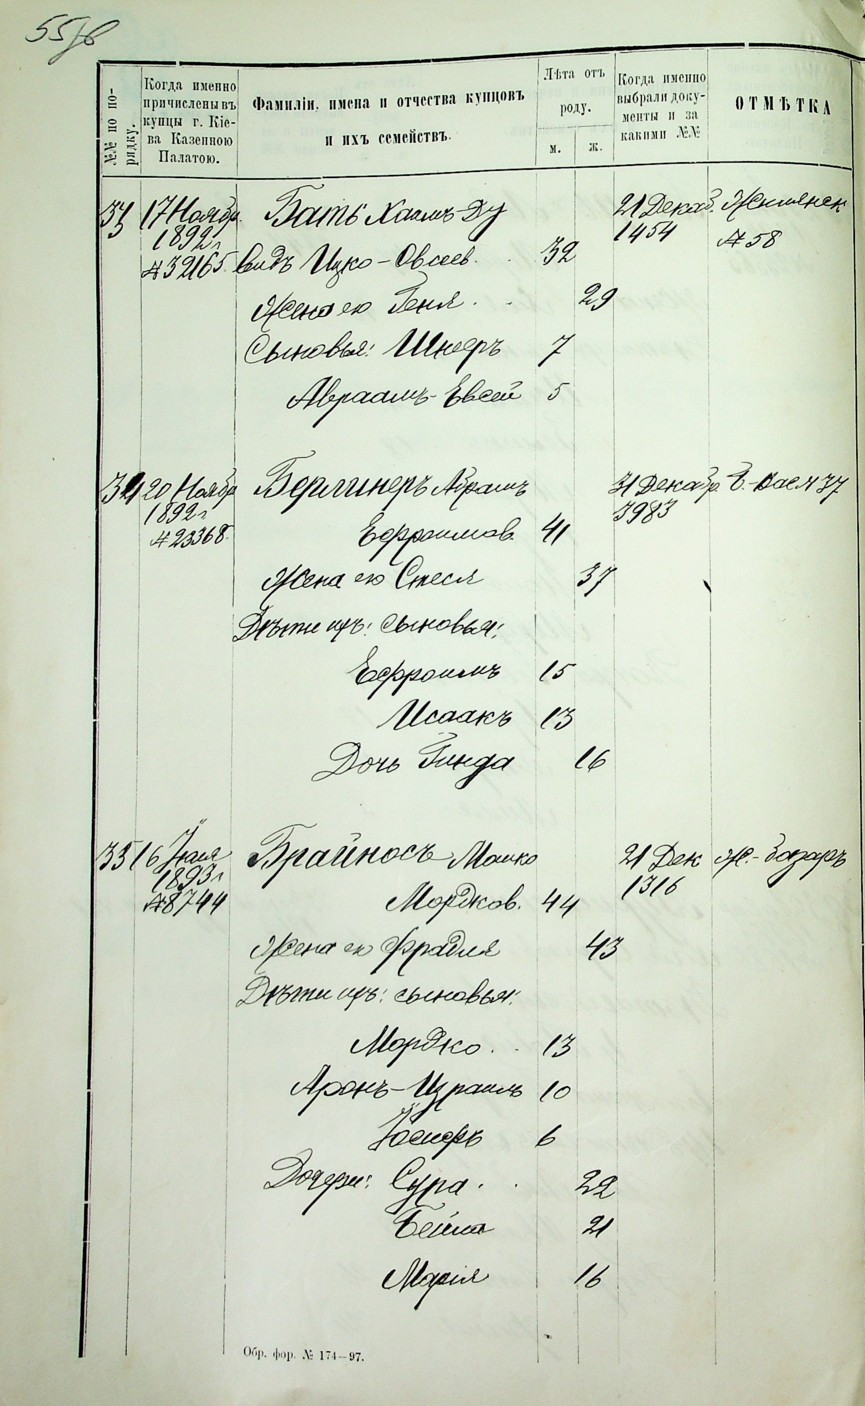 55
№№ по порядку.
Когда именно причислены въ купцы г. Кіева Казенною Палатою.
Фамиліи, имена и отчества купцовъ и ихъ семействъ.
Лѣта отъ роду.
м. ж.
Когда именно выбрали документы и за какими №№
ОТМѢТКА
33 17 Ноябр. Батъ Хаимъ-Ду 21 Декаб.
1892 г. 1454 № 58
№ 32165 видъ Ицко-Овсеев. 32
Жена его Геня 29
Сыновья: Шнееръ 7
Авраамъ-Евсей 5
34 20 Ноябр Берлинеръ Абрамъ 31 Декабр. Б.-Васил 37
1892 г. 3983
№ 23368 Ефроимов. 41
Жена его Стеся 37
Дѣти ихъ: сыновья:
Ефроимъ 15
Исаакъ 13
Дочь Гинда 16
35 16 Іюля Брайносъ Мошко 21 Дек Ж.-базаръ
1893 г. 1316
№ 8744 Мордков. 44
Жена ею Фрадля 43
Дѣти ихъ: сыновья:
Мордко 13
Аронъ-Израиль 10
Іосифъ 6
Дочери: Сура 22
Бейла 21
Марія 16
Обр. фор. № 174—97.